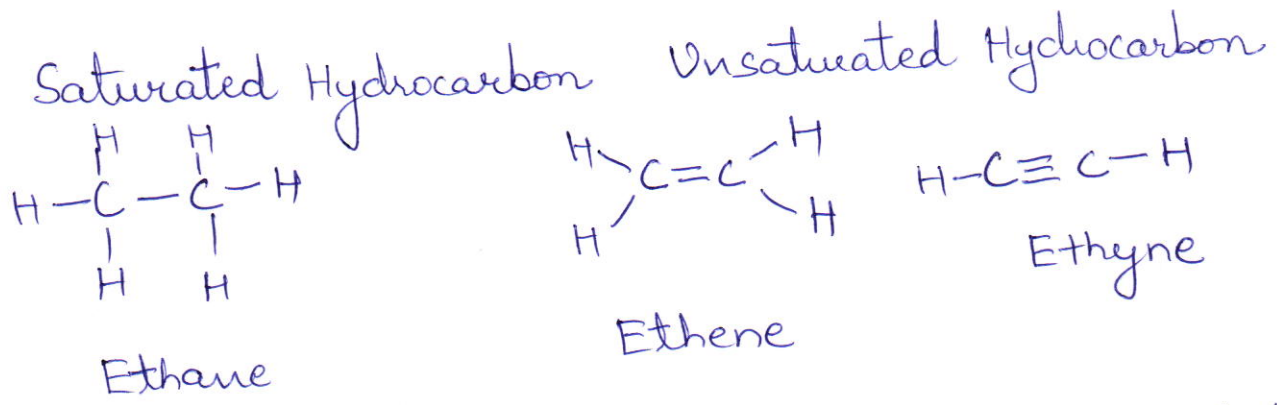 Saturated Hydrocarbon
Unsaturated Hydrocarbon
H H
H-C-C-H
H H
Ethane
H H
C=C
H H
Ethene
H-C≡C-H
Ethyne